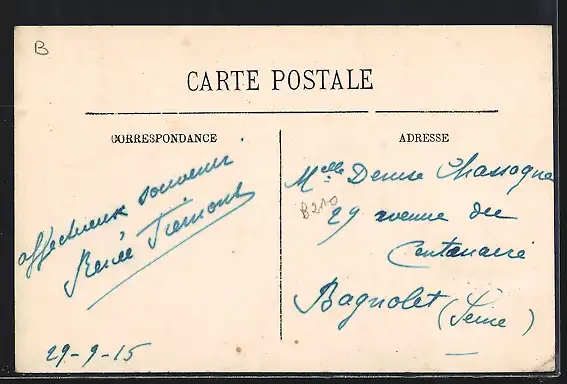 B
CARTE POSTALE
CORRESPONDANCE
affectueux souvenir
Renée Tremont
29-9-15
ADRESSE
Melle Denise Chassagne
B210
29 avenue du
Centenaire
Bagnolet (Seine)